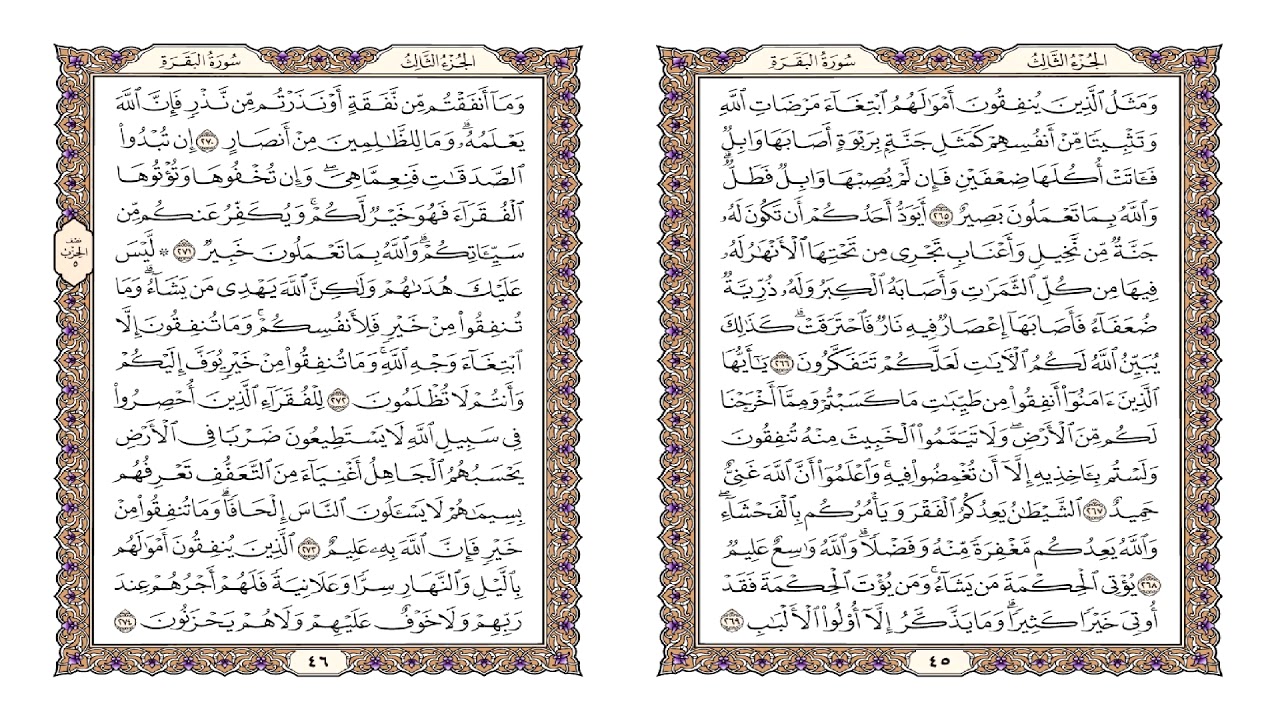 الجزء الثالث
سورة البقرة
وَمَثَلُ ٱلَّذِينَ يُنفِقُونَ أَمْوَٰلَهُمُ ٱبْتِغَآءَ مَرْضَاتِ ٱللَّهِ
وَتَثْبِيتًا مِّنْ أَنفُسِهِمْ كَمَثَلِ جَنَّةٍۭ بِرَبْوَةٍ أَصَابَهَا وَابِلٌ
فَـَٔاتَتْ أُكُلَهَا ضِعْفَيْنِ فَإِن لَّمْ يُصِبْهَا وَابِلٌ فَطَلٌّ ۗ
وَٱللَّهُ بِمَا تَعْمَلُونَ بَصِيرٌ ٢٦٥ أَيَوَدُّ أَحَدُكُمْ أَن تَكُونَ لَهُۥ
جَنَّةٌ مِّن نَّخِيلٍ وَأَعْنَابٍ تَجْرِى مِن تَحْتِهَا ٱلْأَنْهَٰرُ لَهُۥ
فِيهَا مِن كُلِّ ٱلثَّمَرَٰتِ وَأَصَابَهُ ٱلْكِبَرُ وَلَهُۥ ذُرِّيَّةٌ
ضُعَفَآءُ فَأَصَابَهَآ إِعْصَارٌ فِيهِ نَارٌ فَٱحْتَرَقَتْ ۗ كَذَٰلِكَ
يُبَيِّنُ ٱللَّهُ لَكُمُ ٱلْـَٔايَٰتِ لَعَلَّكُمْ تَتَفَكَّرُونَ ٢٦٦ يَٰٓأَيُّهَا
ٱلَّذِينَ ءَامَنُوٓا۟ أَنفِقُوا۟ مِن طَيِّبَٰتِ مَا كَسَبْتُمْ وَمِمَّآ أَخْرَجْنَا
لَكُم مِّنَ ٱلْأَرْضِ ۖ وَلَا تَيَمَّمُوا۟ ٱلْخَبِيثَ مِنْهُ تُنفِقُونَ
وَلَسْتُم بِـَٔاخِذِيهِ إِلَّآ أَن تُغْمِضُوا۟ فِيهِ ۚ وَٱعْلَمُوٓا۟ أَنَّ ٱللَّهَ غَنِىٌّ
حَمِيدٌ ٢٦٧ ٱلشَّيْطَٰنُ يَعِدُكُمُ ٱلْفَقْرَ وَيَأْمُرُكُم بِٱلْفَحْشَآءِ ۖ
وَٱللَّهُ يَعِدُكُم مَّغْفِرَةً مِّنْهُ وَفَضْلًا ۗ وَٱللَّهُ وَٰسِعٌ عَلِيمٌ
٢٦٨ يُؤْتِى ٱلْحِكْمَةَ مَن يَشَآءُ ۚ وَمَن يُؤْتَ ٱلْحِكْمَةَ فَقَدْ
أُوتِىَ خَيْرًا كَثِيرًا ۗ وَمَا يَذَّكَّرُ إِلَّآ أُو۟لُوا۟ ٱلْأَلْبَٰبِ ٢٦٩
٤٥
الجزء الثالث
سورة البقرة
وَمَآ أَنفَقْتُم مِّن نَّفَقَةٍ أَوْ نَذَرْتُم مِّن نَّذْرٍ فَإِنَّ ٱللَّهَ
يَعْلَمُهُۥ ۗ وَمَا لِلظَّٰلِمِينَ مِنْ أَنصَارٍ ٢٧٠ إِن تُبْدُوا۟
ٱلصَّدَقَٰتِ فَنِعِمَّا هِىَ ۖ وَإِن تُخْفُوهَا وَتُؤْتُوهَا
ٱلْفُقَرَآءَ فَهُوَ خَيْرٌ لَّكُمْ ۚ وَيُكَفِّرُ عَنكُم مِّن
سَيِّـَٔاتِكُمْ ۗ وَٱللَّهُ بِمَا تَعْمَلُونَ خَبِيرٌ ٢٧١ ۞ لَّيْسَ
عَلَيْكَ هُدَىٰهُمْ وَلَٰكِنَّ ٱللَّهَ يَهْدِى مَن يَشَآءُ ۗ وَمَا
تُنفِقُوا۟ مِنْ خَيْرٍ فَلِأَنفُسِكُمْ ۚ وَمَا تُنفِقُونَ إِلَّا
ٱبْتِغَآءَ وَجْهِ ٱللَّهِ ۚ وَمَا تُنفِقُوا۟ مِنْ خَيْرٍ يُوَفَّ إِلَيْكُمْ
وَأَنتُمْ لَا تُظْلَمُونَ ٢٧٢ لِلْفُقَرَآءِ ٱلَّذِينَ أُحْصِرُوا۟
فِى سَبِيلِ ٱللَّهِ لَا يَسْتَطِيعُونَ ضَرْبًا فِى ٱلْأَرْضِ
يَحْسَبُهُمُ ٱلْجَاهِلُ أَغْنِيَآءَ مِنَ ٱلتَّعَفُّفِ تَعْرِفُهُم
بِسِيمَٰهُمْ لَا يَسْـَٔلُونَ ٱلنَّاسَ إِلْحَافًا ۗ وَمَا تُنفِقُوا۟ مِنْ
خَيْرٍ فَإِنَّ ٱللَّهَ بِهِۦ عَلِيمٌ ٢٧٣ ٱلَّذِينَ يُنفِقُونَ أَمْوَٰلَهُم
بِٱلَّيْلِ وَٱلنَّهَارِ سِرًّا وَعَلَانِيَةً فَلَهُمْ أَجْرُهُمْ عِندَ
رَبِّهِمْ وَلَا خَوْفٌ عَلَيْهِمْ وَلَا هُمْ يَحْزَنُونَ ٢٧٤
نصف
الحزب
٥
٤٦